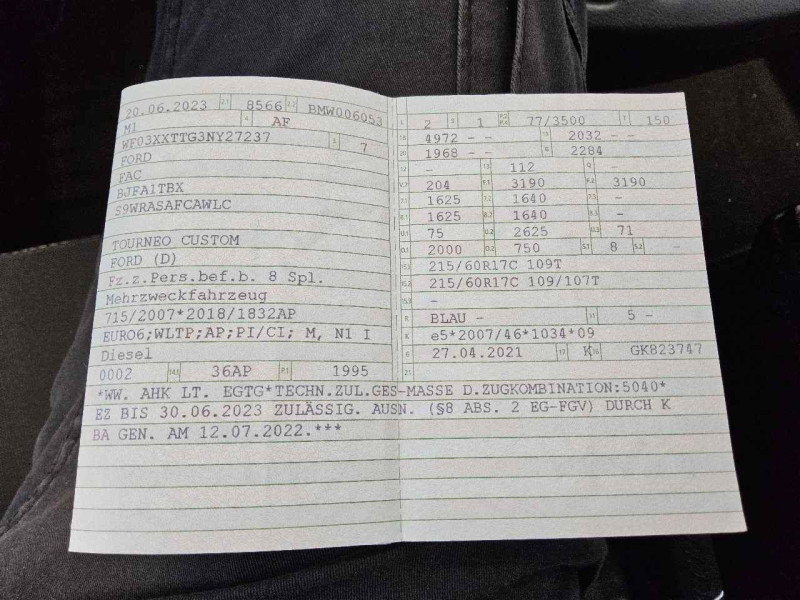 20.06.2023 2.1 8566 2.2 BMW006053
M1 4 AF
WF03XXTTG3NY27237 3 7
FORD
FAC
BJFA1TBX
S9WRASAFCAWLC
TOURNEO CUSTOM
FORD (D)
Fz.z.Pers.bef.b. 8 Spl.
Mehrzweckfahrzeug
715/2007*2018/1832AP
EURO6;WLTP;AP;PI/CI; M, N1 I
Diesel
0002 14.1 36AP P.1 1995
L 2 9 1 P.2 P.4 77/3500 T 150
18 4972 - - 19 2032 - -
20 1968 - - G 2284
12 - 13 112 Q -
V.7 204 F.1 3190 F.2 3190
7.1 1625 7.2 1640 7.3 -
8.1 1625 8.2 1640 8.3 -
U.1 75 U.2 2625 U.3 71
O.1 2000 O.2 750 S.1 8 S.2 -
15.1 215/60R17C 109T
15.2 215/60R17C 109/107T
15.3 -
R BLAU - 11 5 -
K e5*2007/46*1034*09
6 27.04.2021 17 K 16 GK823747
21
*WW. AHK LT. EGTG*TECHN.ZUL.GES-MASSE D.ZUGKOMBINATION:5040*
EZ BIS 30.06.2023 ZULÄSSIG. AUSN. (§8 ABS. 2 EG-FGV) DURCH K
BA GEN. AM 12.07.2022.***